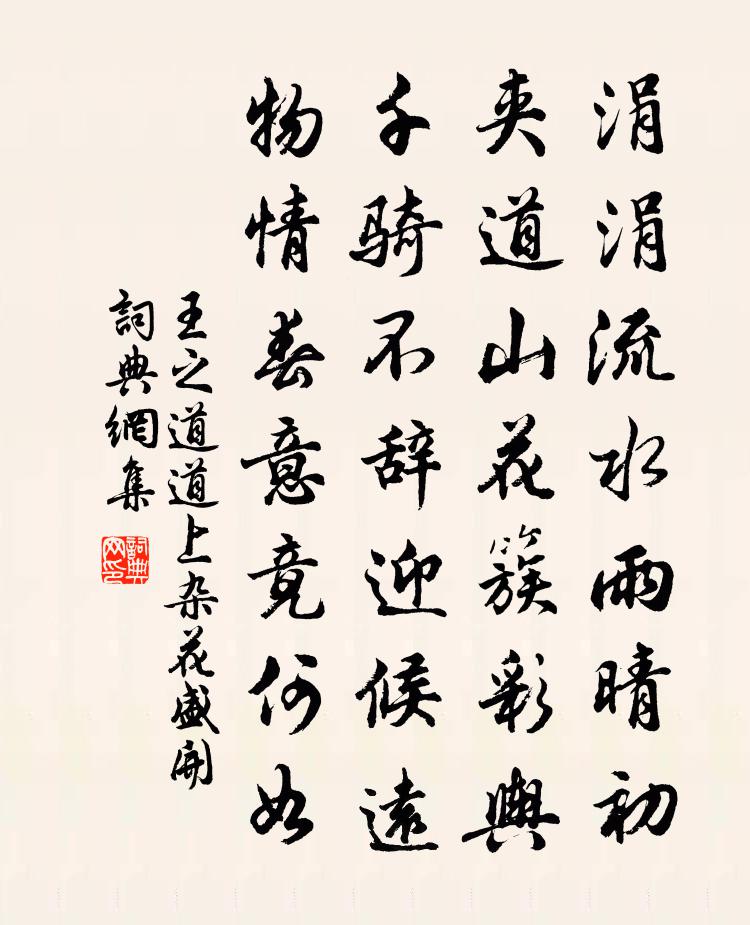 涓涓流水雨晴初
夾道山花簇彩輿
千騎不辞迎候遠
物情春意竟何如
王之道道上杂花盛開
詞典網集
詞典網印